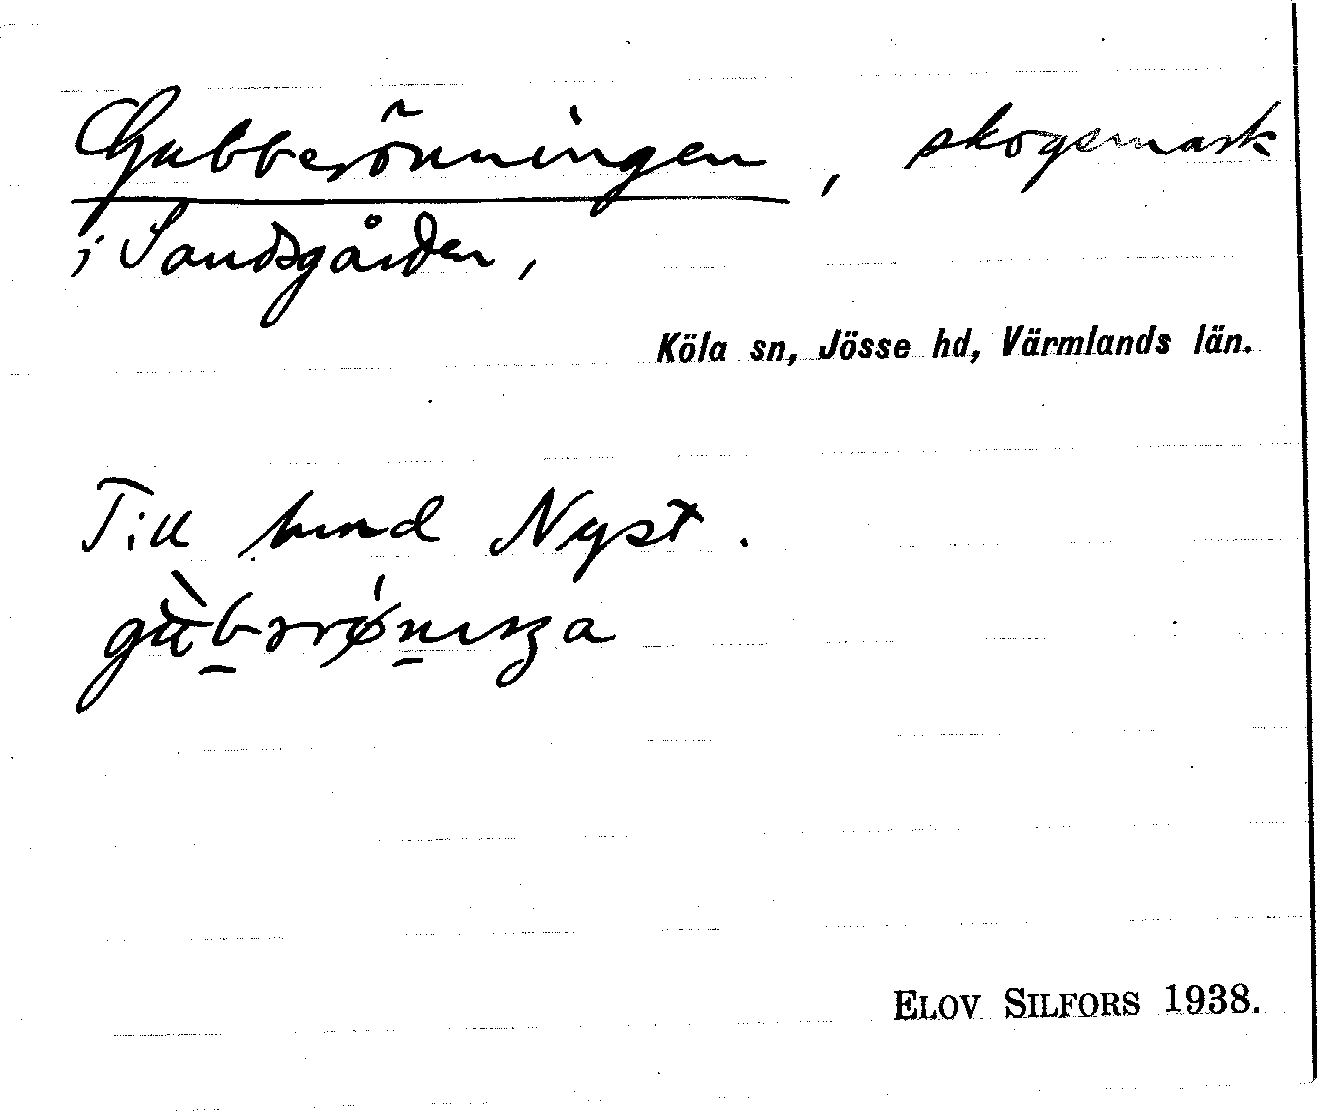 Gubberönningen, skogsmark
i Sandsgården,
Köla sn, Jösse hd, Värmlands län.
Till hmd Nyst.
ELOV SILFORS 1938.